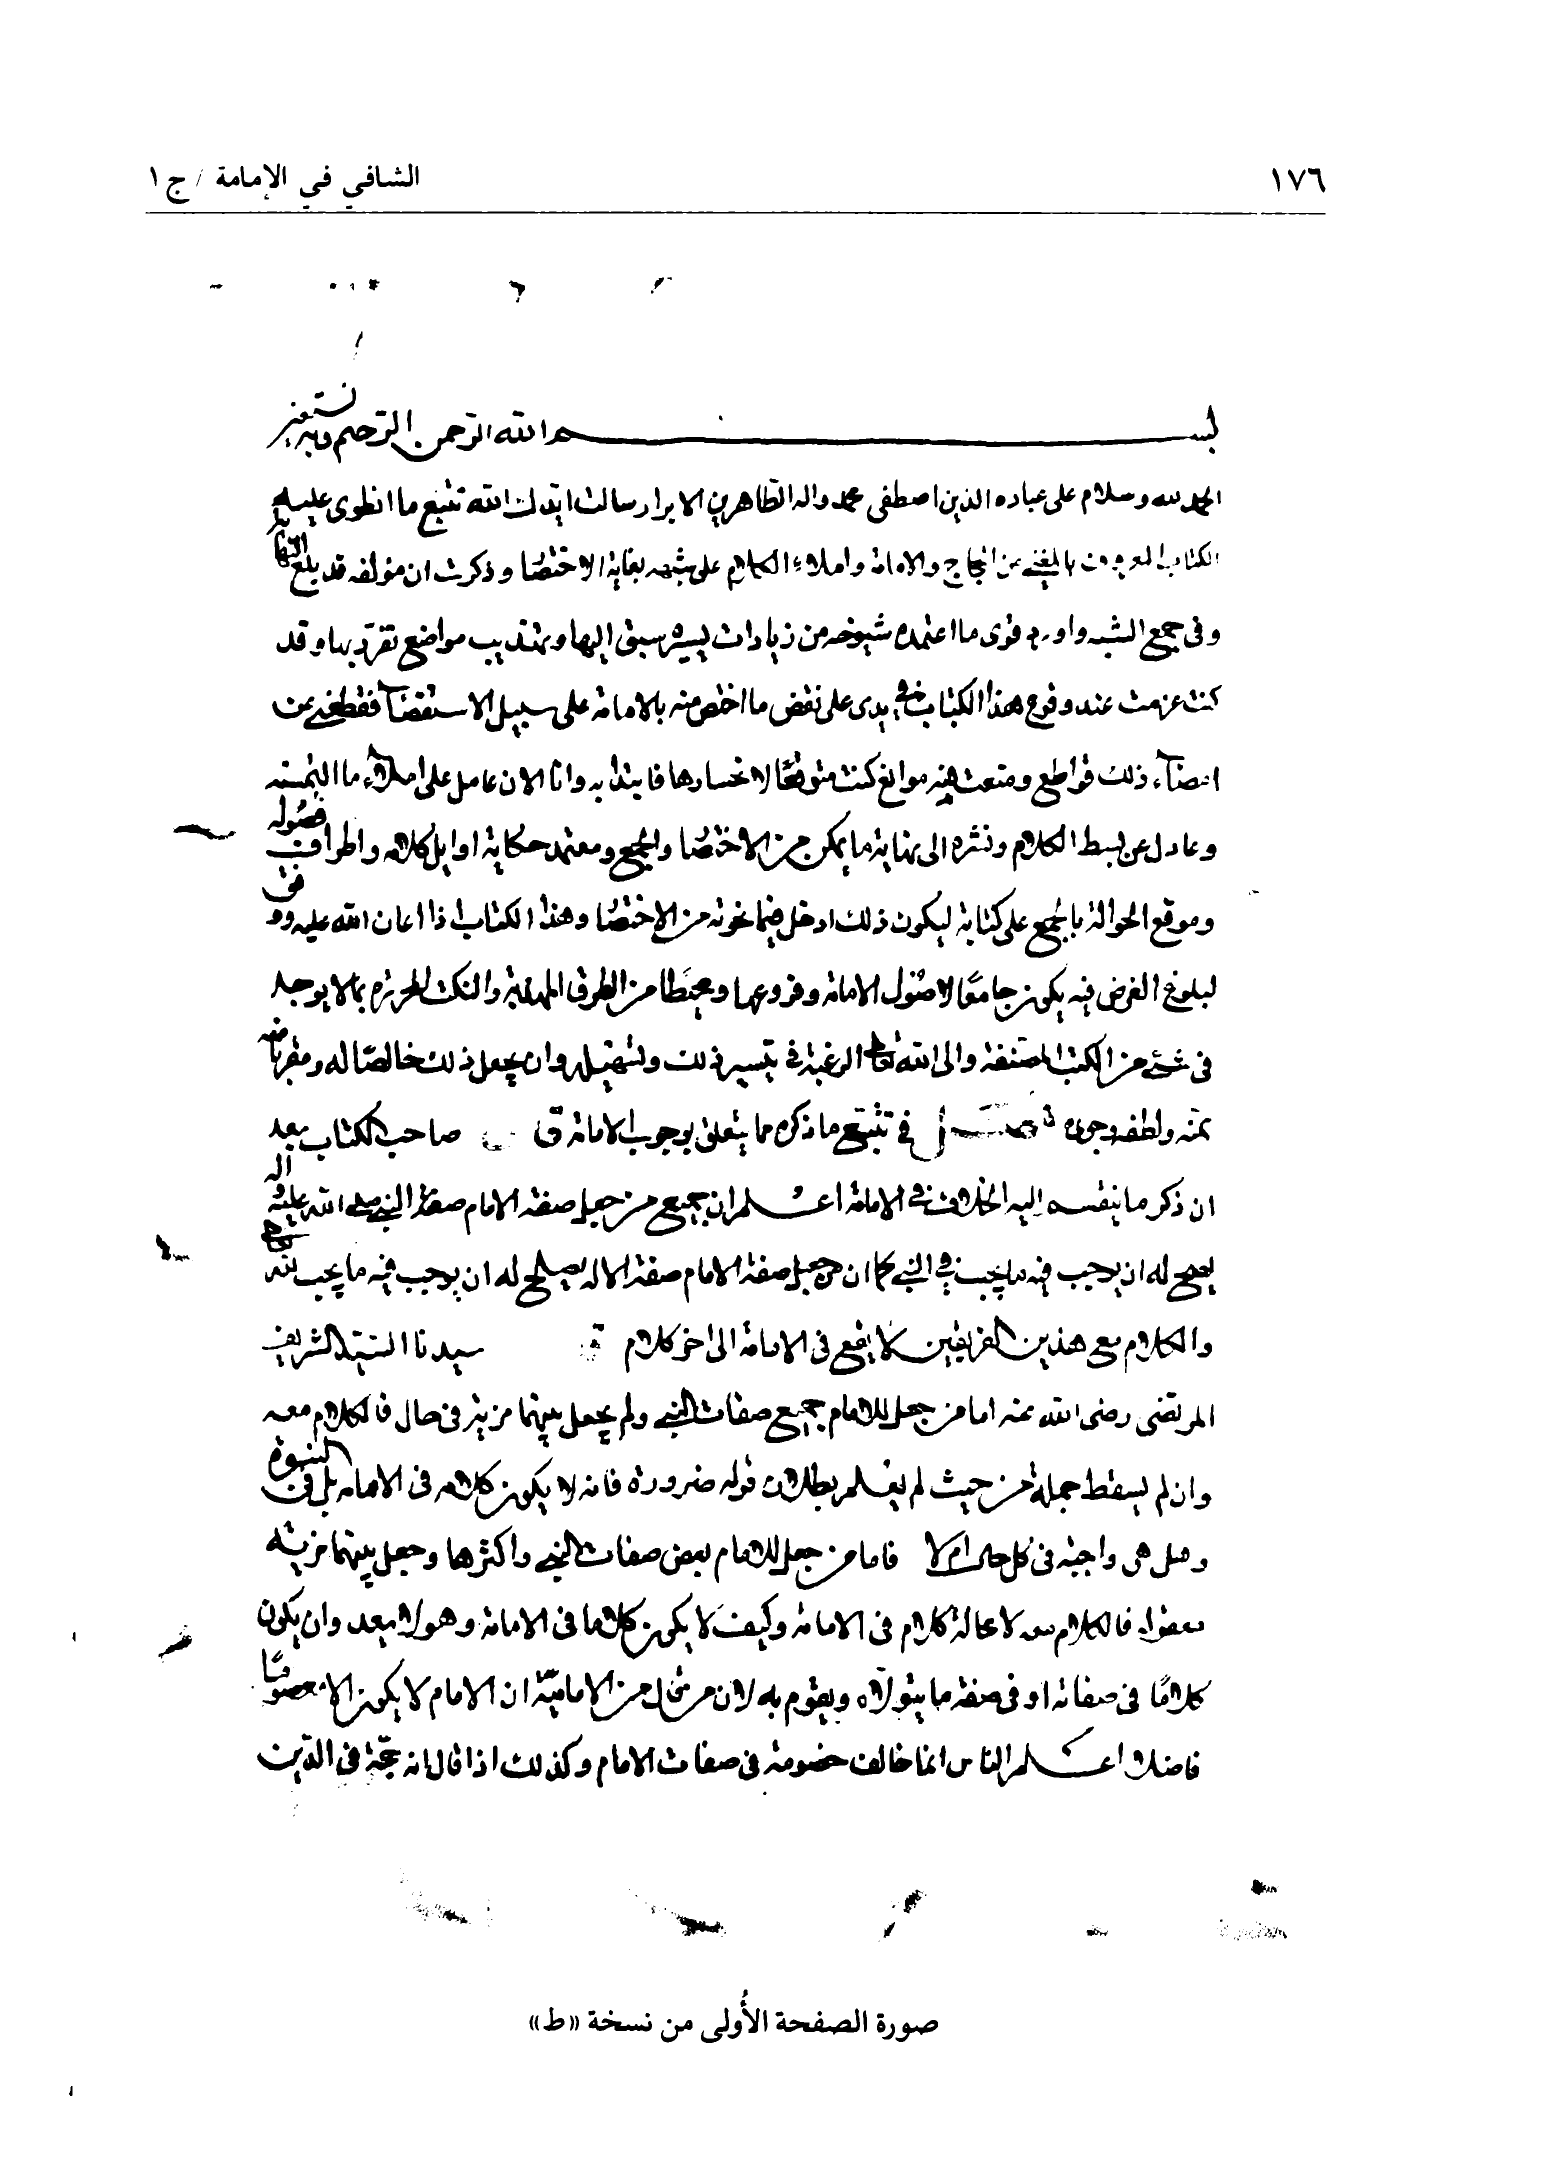 ١٧٦
الشافي في الإمامة / ج ١
بسم الله الرحمن الرحيم وبه نستعين
الحمد لله وسلام على عباده الذين اصطفى محمد واله الطاهرين الابرار سالت ايدك الله تتبع ما انطوى عليه
الكتاب المعروف بالمغني من الحجاج في الامامة واملاء الكلام على شبهه بغاية الاختصار وذكرت ان مؤلفه قد بلغ النهاية
في جمع الشبه واورد قوى ما اعتمده شيوخه من زيادات يسيرة سبق اليها وتهذيب مواضع تفرد بها وقد
كنت عزمت عند وقوع هذا الكتاب في يدى على نقض ما اختص منه بالامامة على سبيل الاستقضاء فقطعني عن
امضاء ذلك قواطع ومنعت منه موانع كنت متوقعا لانحسارها فابتدأ به وانا الان عامل على املاء ما التمسته
وعادل عن بسط الكلام ونثره الى نهاية ما يمكن من الاختصار والجمع ومعتمد حكاية اوايل كلامه واطراف فصوله
وموقع الحوالة بالجميع على كتابه ليكون ذلك ادخل فيما نحوته من الاختصار وهذا الكتاب اذا اعان الله عليه ووفق
لبلوغ الغرض فيه يكون جامعا لاصول الامامة وفروعها ومحيطا من الطرق المهذبة والنكت المحررة بما لا يوجد
فى شئ من الكتب المصنفة والى الله تعالى الرغبة في تيسير ذلك وتسهيله وان يجعل ذلك خالصا له ومقربا منه
بمنه ولطفه وجوده فصل في تتبع ما ذكره مما يتعلق بوجوب الامامة ق صاحب الكتاب بعد
ان ذكر ما ينقسم اليه الخلاف في الامامة اعلم ان جميع من جعل صفة الامام صفة النبي صلى الله عليه واله
يصح له ان يوجب فيه ما يجب في النبي كما ان من جعل صفة الامام صفة الاله يصلح له ان يوجب فيه ما يجب لله تعالى
والكلام مع هذين الفريقين لا يقع فى الامامة الى اخر كلام سيدنا السيد الشريف
المرتضى رضى الله عنه اما من جعل للامام جميع صفات النبي ولم يجعل بينهما مزية فى حال فالكلام معه
وان لم يسقط جملة من حيث لم يعلم بطلان قوله ضرورة فانه لا يكون كلامه فى الامامة بل فى النبوة
وهل هى واجبة فى كل حال ام لا فاما من جعل للامام بعض صفات النبي واكثرها وجعل بينهما مزية
معقولة فالكلام معه لا محالة كلام فى الامامة وكيف لا يكون كلاما فى الامامة وهو لا يعد وان يكون
كلاما فى صفاته او فى صفة ما يتولاه ويقوم به لان من قال من الامامية ان الامام لا يكون الا معصوما
فاضلا اعلم الناس انما خالف خصومه فى صفات الامام وكذلك اذا قال انه حجة فى الدين
صورة الصفحة الأُولى من نسخة «ط»